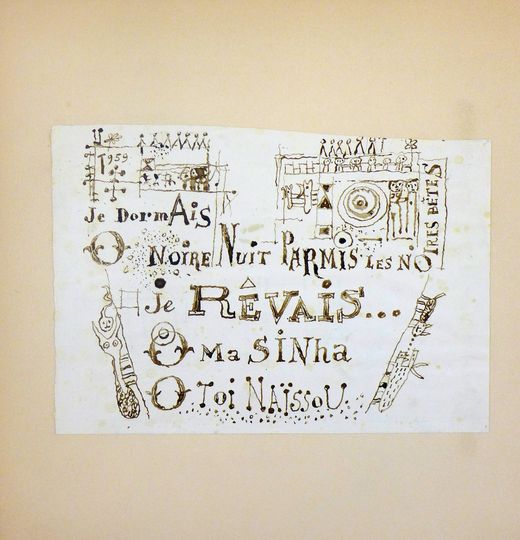 1959
Je DormAis
O NOIRE NUIT PARMIS LES NOIRES BÊTES
Je RÊVAIS...
O MA SINHA
O TOI NAÏSSOU